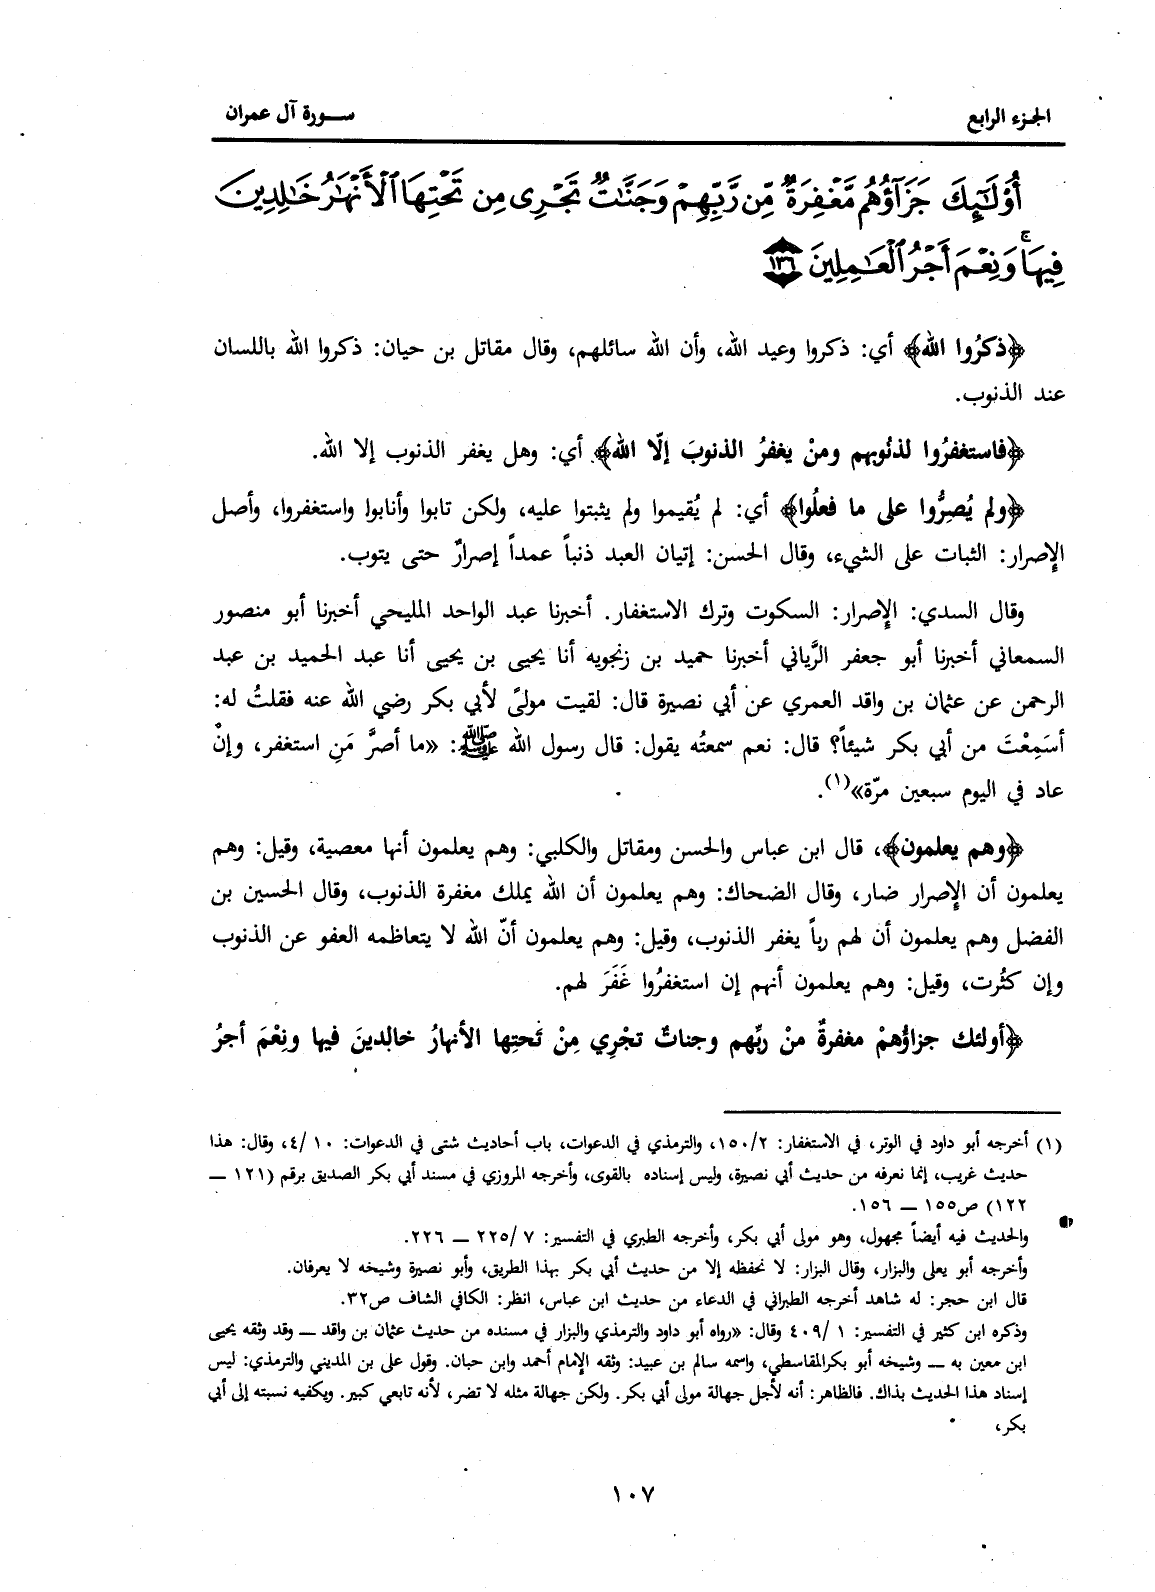 الجزء الرابع
سورة آل عمران
أُوْلَٰٓئِكَ جَزَآؤُهُم مَّغْفِرَةٌ مِّن رَّبِّهِمْ وَجَنَّٰتٌ تَجْرِى مِن تَحْتِهَا ٱلْأَنْهَٰرُ خَٰلِدِينَ
فِيهَا ۚ وَنِعْمَ أَجْرُ ٱلْعَٰمِلِينَ ١٣٦
﴿ذكرُوا الله﴾ أي: ذكروا وعيد الله، وأن الله سائلهم، وقال مقاتل بن حيان: ذكروا الله باللسان
عند الذنوب.
﴿فاستغفرُوا لذنُوبهم ومنْ يغفرُ الذنوبَ إلّا الله﴾ أي: وهل يغفر الذنوب إلا الله.
﴿ولم يُصِرُّوا على ما فعلُوا﴾ أي: لم يُقيموا ولم يثبتوا عليه، ولكن تابوا وأنابوا واستغفروا، وأصل
الإصرار: الثبات على الشيء، وقال الحسن: إتيان العبد ذنباً عمداً إصرارٌ حتى يتوب.
وقال السدي: الإصرار: السكوت وترك الاستغفار. أخبرنا عبد الواحد المليحي أخبرنا أبو منصور
السمعاني أخبرنا أبو جعفر الرَّياني أخبرنا حميد بن زنجويه أنا يحيى بن يحيى أنا عبد الحميد بن عبد
الرحمن عن عثمان بن واقد العمري عن أبي نصيرة قال: لقيت مولىً لأبي بكر رضي الله عنه فقلتُ له:
أسَمِعْتَ من أبي بكر شيئاً؟ قال: نعم سمعتُه يقول: قال رسول الله ﷺ: «ما أصرَّ مَنِ استغفر، وإنْ
عاد في اليوم سبعين مرّة»(١).
﴿وهم يعلمون﴾، قال ابن عباس والحسن ومقاتل والكلبي: وهم يعلمون أنها معصية، وقيل: وهم
يعلمون أن الإصرار ضار، وقال الضحاك: وهم يعلمون أن الله يملك مغفرة الذنوب، وقال الحسين بن
الفضل وهم يعلمون أن لهم رباً يغفر الذنوب، وقيل: وهم يعلمون أنّ الله لا يتعاظمه العفو عن الذنوب
وإن كثُرت، وقيل: وهم يعلمون أنهم إن استغفرُوا غَفَرَ لهم.
﴿أولئك جزاؤُهمْ مغفرةٌ منْ ربِّهم وجناتٌ تجْرِي مِنْ تَحتِها الأنهارُ خالِدينَ فيها ونِعْمَ أجرُ
(١) أخرجه أبو داود في الوتر، في الاستغفار: ١٥٠/٢، والترمذي في الدعوات، باب أحاديث شتى في الدعوات: ٤/١٠، وقال: هذا
حديث غريب، إنما نعرفه من حديث أبي نصيرة، وليس إسناده بالقوى، وأخرجه المروزي في مسند أبي بكر الصديق برقم (١٢١ ــ
١٢٢) ص١٥٥ ــ ١٥٦.
والحديث فيه أيضاً مجهول، وهو مولى أبي بكر، وأخرجه الطبري في التفسير: ٧/ ٢٢٥ ــ ٢٢٦.
وأخرجه أبو يعلى والبزار، وقال البزار: لا نحفظه إلا من حديث أبي بكر بهذا الطريق، وأبو نصيرة وشيخه لا يعرفان.
قال ابن حجر: له شاهد أخرجه الطبراني في الدعاء من حديث ابن عباس، انظر: الكافي الشاف ص٣٢.
وذكره ابن كثير في التفسير: ١ /٤٠٩ وقال: «رواه أبو داود والترمذي والبزار في مسنده من حديث عثمان بن واقد ــ وقد وثقه يحيى
ابن معين به ــ وشيخه أبو بكرالمقاسطي، واسمه سالم بن عبيد: وثقه الإمام أحمد وابن حبان. وقول على بن المديني والترمذي: ليس
إسناد هذا الحديث بذاك. فالظاهر: أنه لأجل جهالة مولى أبي بكر. ولكن جهالة مثله لا تضر، لأنه تابعي كبير. ويكفيه نسبته إلى أبي
بكر،
١٠٧